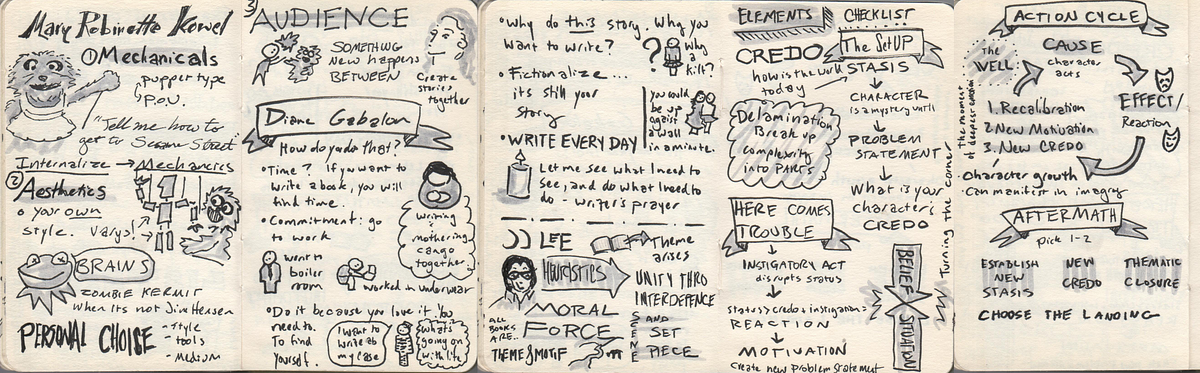 Mary Robinette Kowel
① Mechanicals
puppet type
P.O.V.
"Tell me how to
get to Sesame Street
Internalize → Mechanics
② Aesthetics
• your own
style. Varys!
BRAINS
ZOMBIE KERMIT
when its not Jim Hensen
PERSONAL CHOICE
- style
- tools
- Medium
3) AUDIENCE
SOMETHING
New happens
BETWEEN
Create
stories
together
Diane Gabalon
How do you do that?
• Time? If you want to
write a book, you will
find time.
• Commitment: go
to work
went to
boiler
room
worked in underwear
writing &
mothering
can go
together
• Do it because you love it. You
need to.
To find
yourself.
I want to
write as
my lase
what's
going on
with life
• Why do this story. Why you
want to write?
?
Why
a
kilt?
• Fictionalize...
its still your
story
you could
be up
against
a wall
in a minute.
• WRITE EVERY DAY
Let me see what I need to
see, and do what I need to
do - writer's prayer
LEE
Theme
arises
HEURISTICS
UNITY THRO
INTERDEFENCE
MORAL
FORCE
ALL
BOOKS
ARE..
THEME & MOTIF
SCENE
AND
SET
PIECE
ELEMENTS
CHECKLIST
CREDO
how is the work
today
The SetUP
STASIS
CHARACTER
is a mystery until
PROBLEM
STATEMENT
What is your
character's
CREDO
Delamination
Break up
complexity
into PARTS
HERE COMES
TROUBLE
INSTIGATORY ACT
disrupts status
status > credo > instigation =
REACTION
MOTIVATION
create new Problem Statement
BELIEF
SITUATION
Turning the corner
ACTION CYCLE
The
WELL:
the moment
of deepest
CAUSE
character
acts
EFFECT/
Reaction
1. Recalibration
2. New Motivation
3. New CREDO
• Character growth
• Can manifist in imagry
AFTERMATH
pick 1-2
ESTABLISH
NEW
STASIS
NEW
CREDO
THEMATIC
CLOSURE
CHOOSE THE LANDING